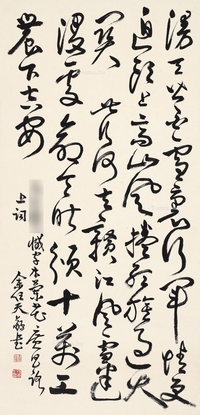 漫天皆白雪裏行軍情更
迫頭上高山風捲紅旗過大
關此行何去贛江風雪迷
漫處命令昨頒十萬工
農下吉安
減字木蘭花廣昌路
上詞